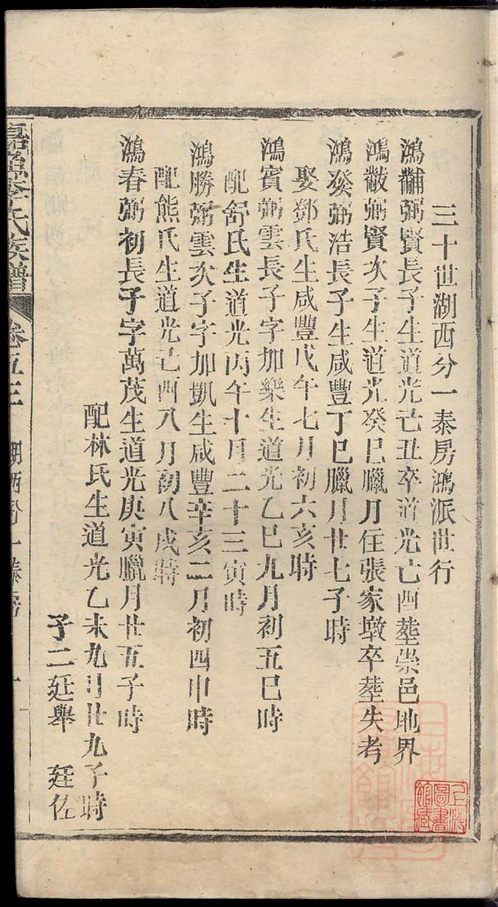 三十世湖西分一泰房鴻派世行
鴻黼弼賢長子生道光己丑卒道光己酉塟崇邑地界
鴻黻弼賢次子生道光癸巳臘月在張家墩卒塟失考
鴻癸弼浩長子生咸豐丁巳臘月廿七子時
娶鄧氏生咸豐戊午七月初六亥時
鴻賓弼雲長子字加樂生道光乙巳九月初五巳時
配舒氏生道光丙午十月二十三寅時
鴻勝弼雲次子字加凱生咸豐辛亥二月初四申時
配熊氏生道光己酉八月初八戌時
鴻春弼初長子字萬茂生道光庚寅臘月廿五子時
配林氏生道光乙未九月廿九子時
子二廷舉 廷佐
李氏族譜 卷五三 湖西分一泰房
上海圖書館藏